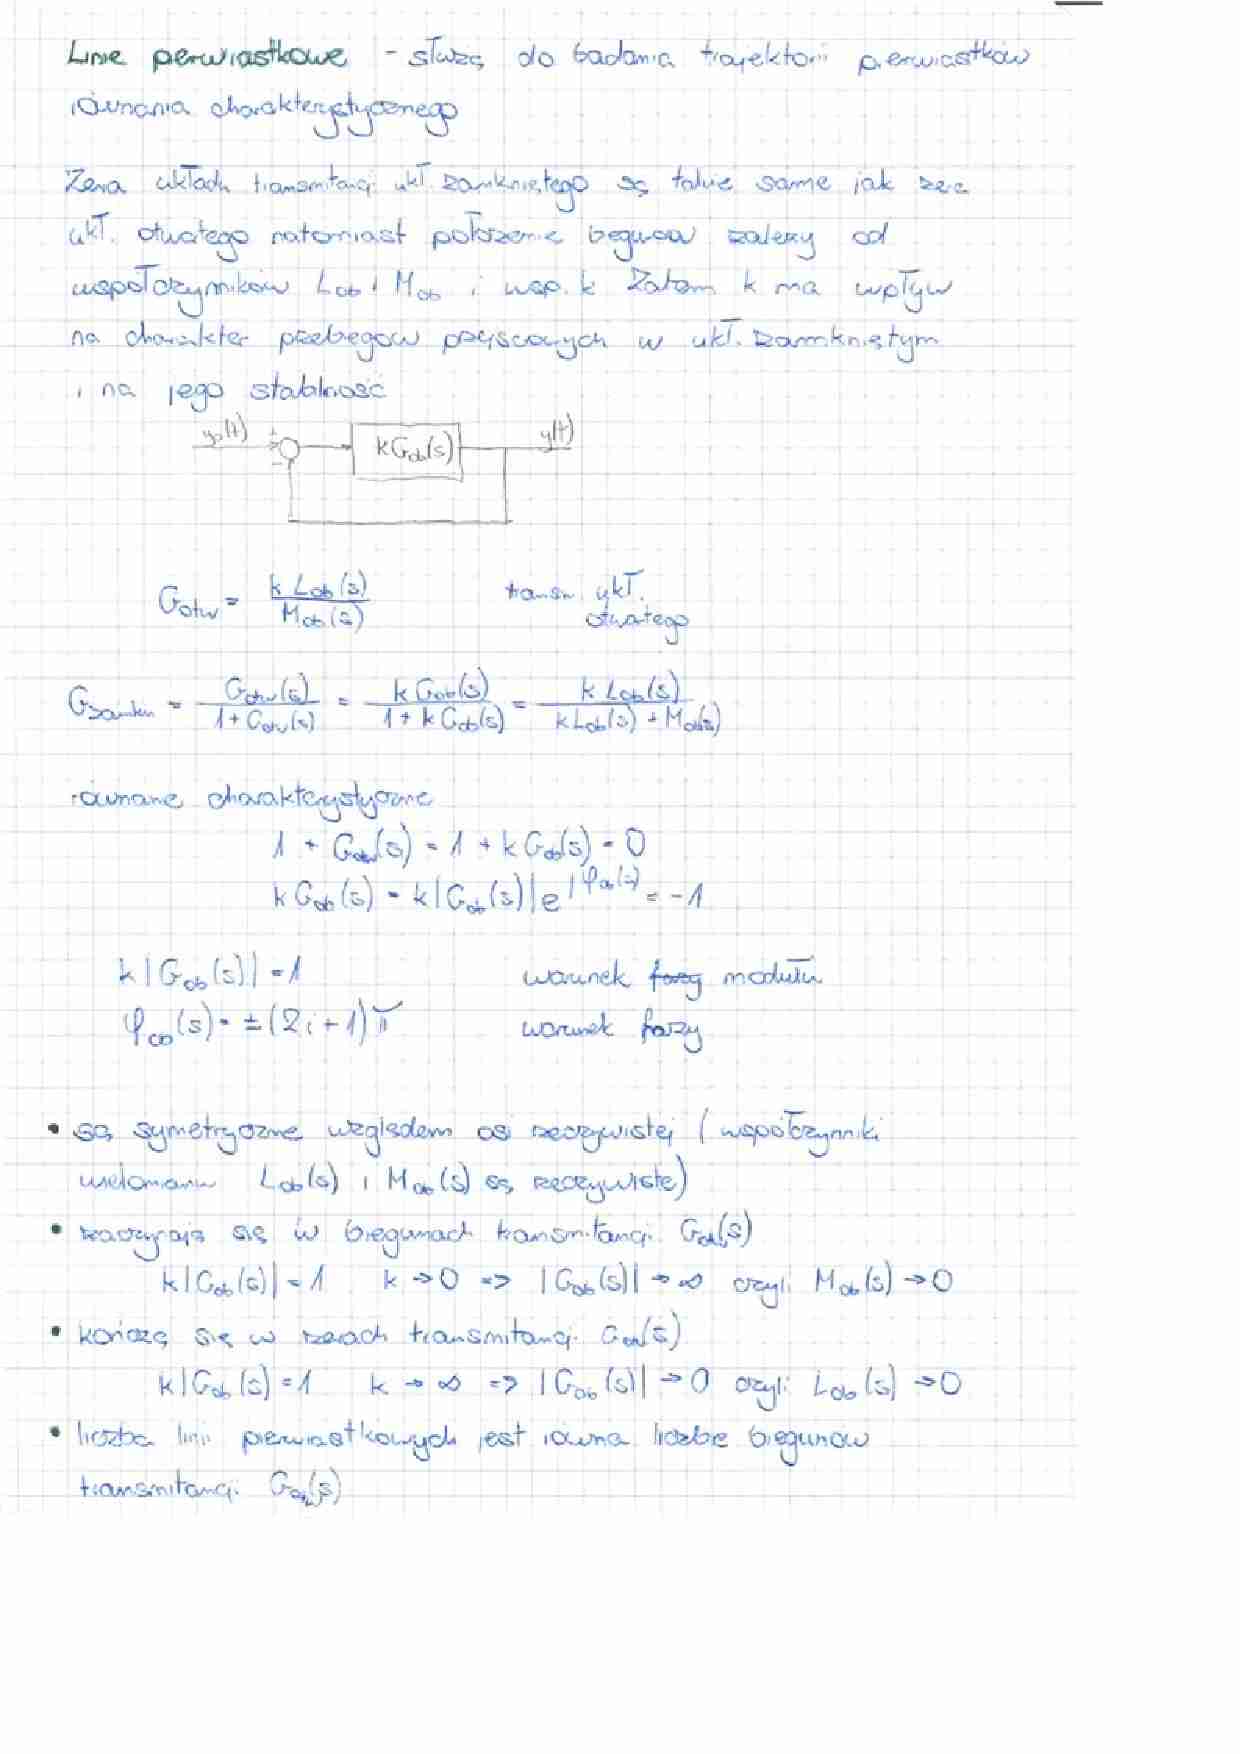 Linie pierwiastkowe - służą do badania trajektorii pierwiastków
równania charakterystycznego
Zera układu transmitancji ukł. zamkniętego są takie same jak zera
ukł. otwartego natomiast położenie biegunów zależy od
współczynników Lob i Mob i wsp. k Zatem k ma wpływ
na charakter przebiegów przejściowych w ukł. zamkniętym
i na jego stabilność
y₀(t) + - kGob(s) y(t)
Gotw = k Lob(s) / Mob(s) transm. ukł.
otwartego
Gzamkn = Gotw(s) / 1 + Gotw(s) = k Gob(s) / 1 + k Gob(s) = k Lob(s) / kLob(s) + Mob(s)
równanie charakterystyczne
1 + Gotw(s) = 1 + k Gob(s) = 0
k Gob(s) = k |Gob(s)| e^jφob(s) = -1
k |Gob(s)| = 1 warunek modułu
φob(s) = ±(2i + 1)π warunek fazy
• są symetryczne względem osi rzeczywistej (współczynniki
wielomianu Lob(s) i Mob(s) są rzeczywiste)
• zaczynają się w biegunach transmitancji Gob(s)
k |Gob(s)| = 1 k → 0 => |Gob(s)| → ∞ czyli Mob(s) → 0
• kończą się w zerach transmitancji Gob(s)
k |Gob(s) = 1 k → ∞ => |Gob(s)| → 0 czyli Lob(s) → 0
• liczba linii pierwiastkowych jest równa liczbie biegunów
transmitancji Gob(s)